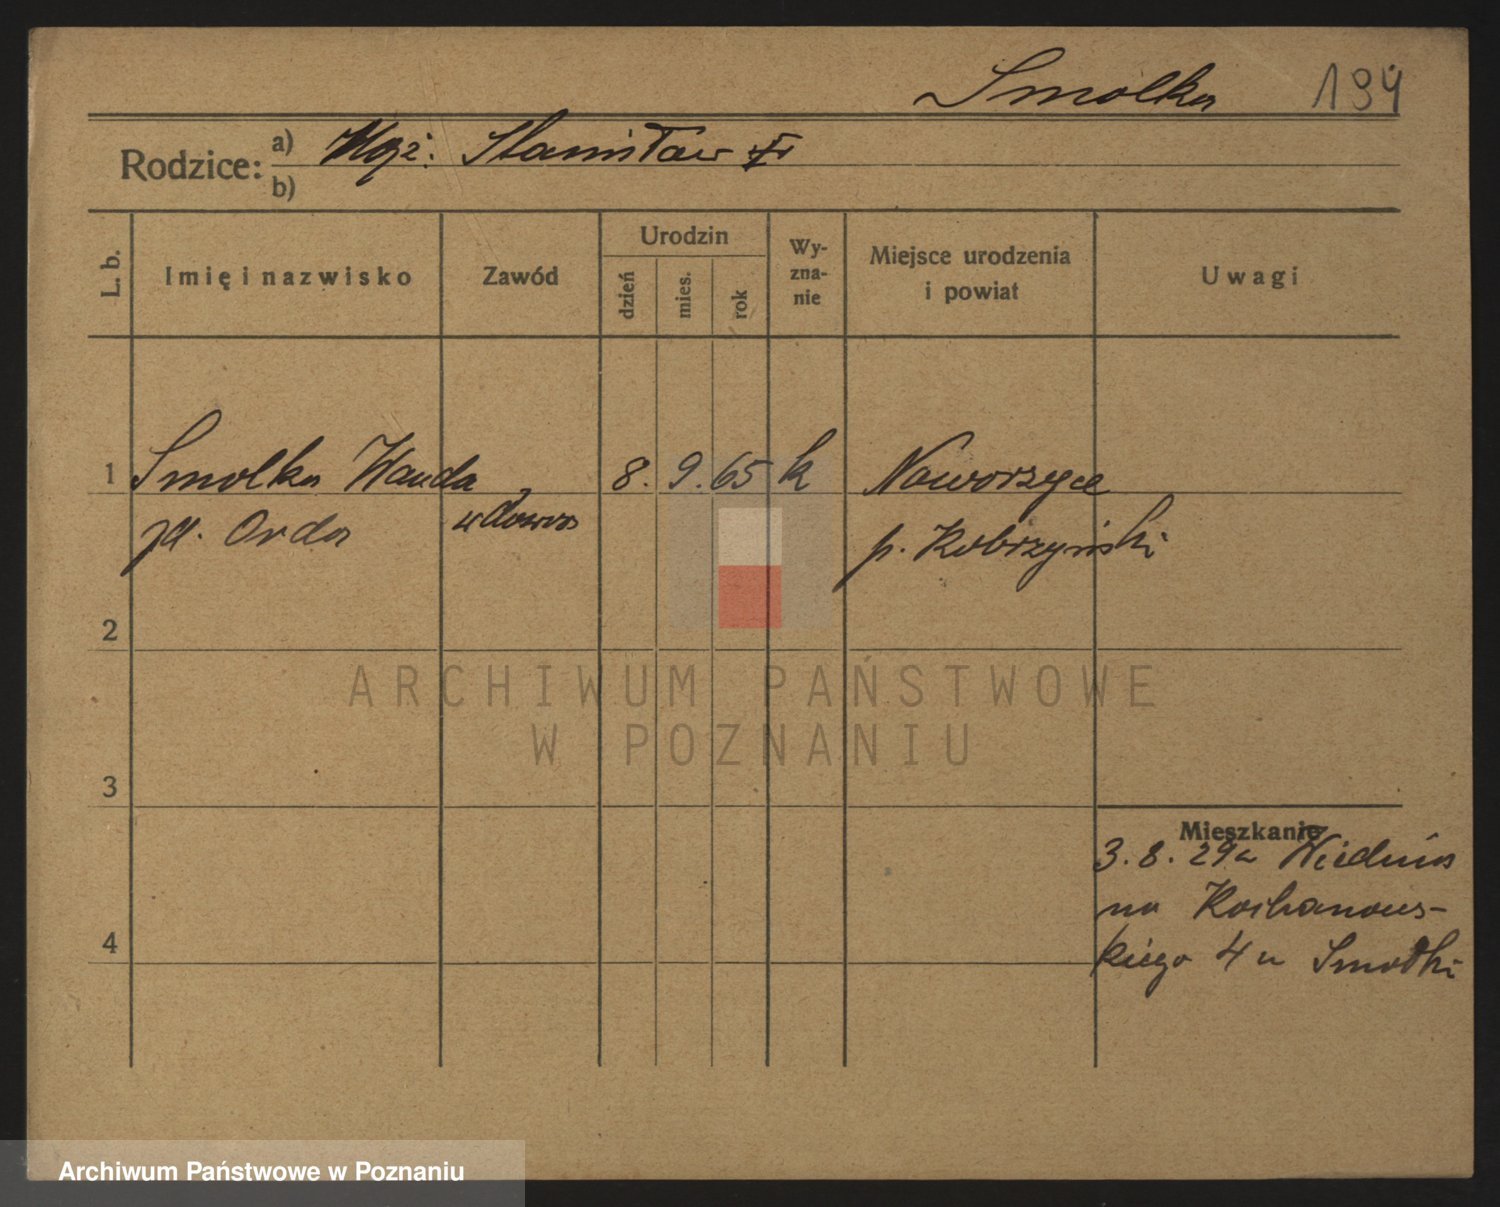 Smolka 194
Rodzice: a) Mąż: Stanisław
b)
L. b. Imię i nazwisko Zawód Urodzin dzień mies. rok Wyznanie Miejsce urodzenia i powiat Uwagi
1 Smolka Wanda 8. 9. 65 k Noworzyce
zd. Orda wdowa p. Kobrzyński
2
ARCHIWUM PAŃSTWOWE
W POZNANIU
3
Mieszkanie
3. 8. 29 z Wiednia
na Kochanows-
4 kiego 4 u Smolki
Archiwum Państwowe w Poznaniu